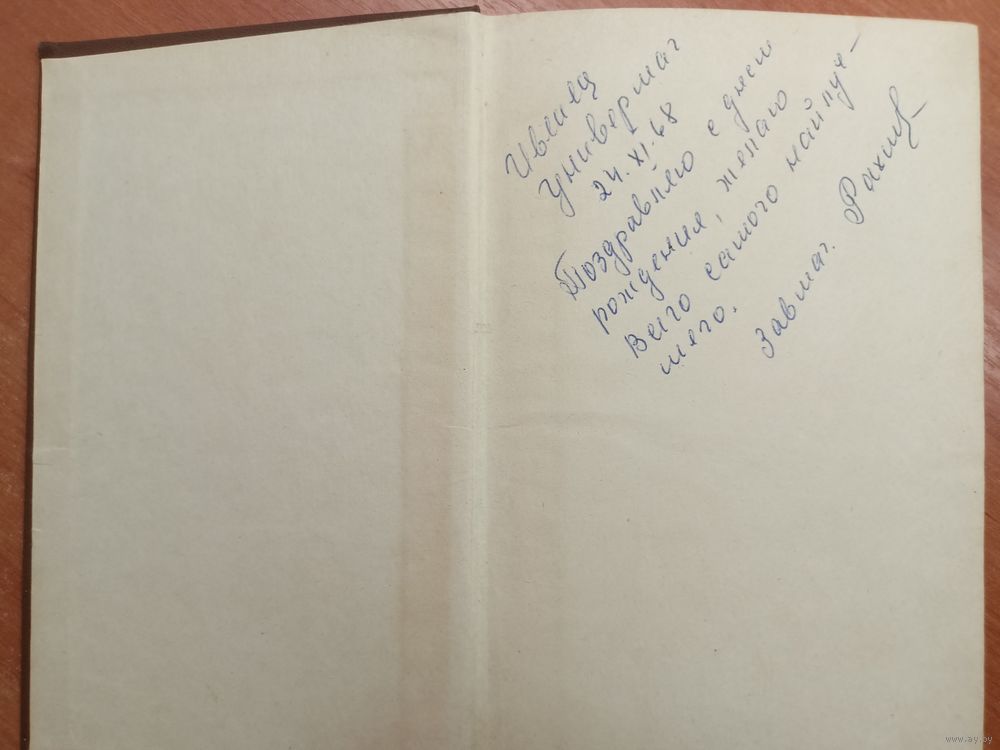 Универмаг
24.XI.68
Поздравляю с днем
рождения, желаю
всего самого найлуч-
шего.
Завмаг.
www.ay.by